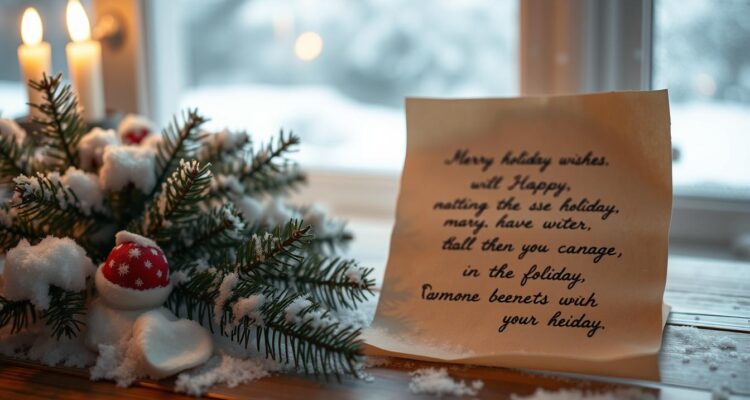 Merry holiday wishes,
will Happy,
natting the sse holiday,
mary, have witer,
tall then you canage,
in the foliday,
Famone beenets wich
your heiday.